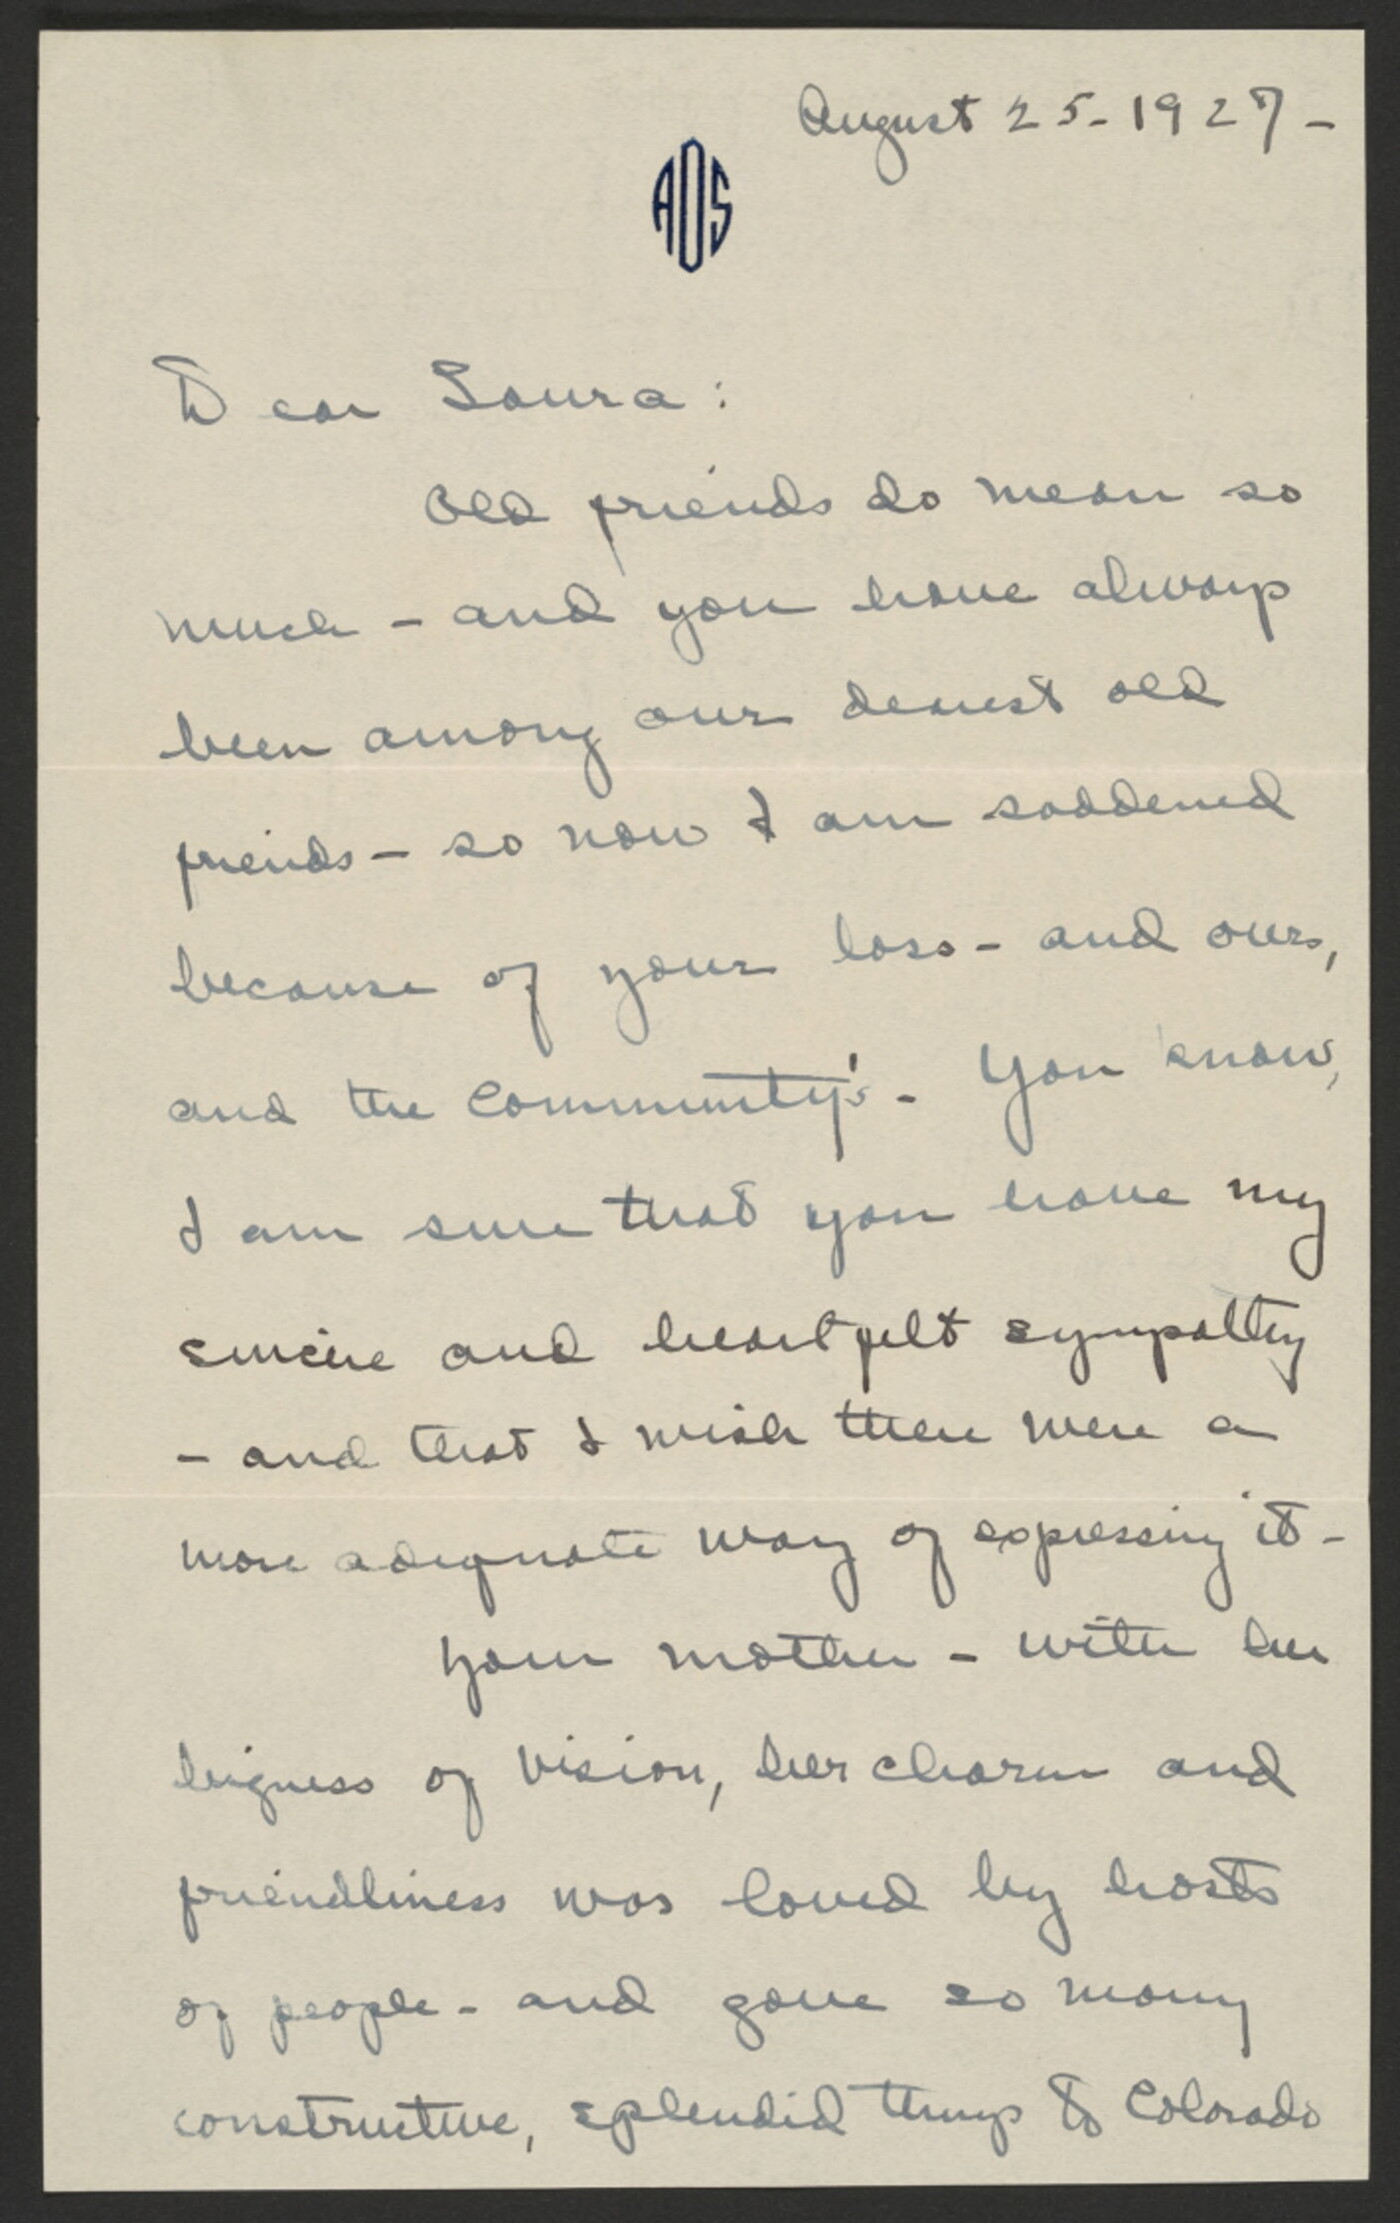 August 25-1927-
AOS
Dear Laura:
Old friends do mean so
much - and you have always
been among our dearest old
friends - so now I am saddened
because of your loss - and ours,
and the Community's. You know,
I am sure that you have my
sincere and heartfelt sympathy
- and that I wish there were a
more adequate way of expressing it -
Your mother - with her
bigness of vision, her charm and
friendliness was loved by hosts
of people - and gave so many
constructive, splendid things to Colorado